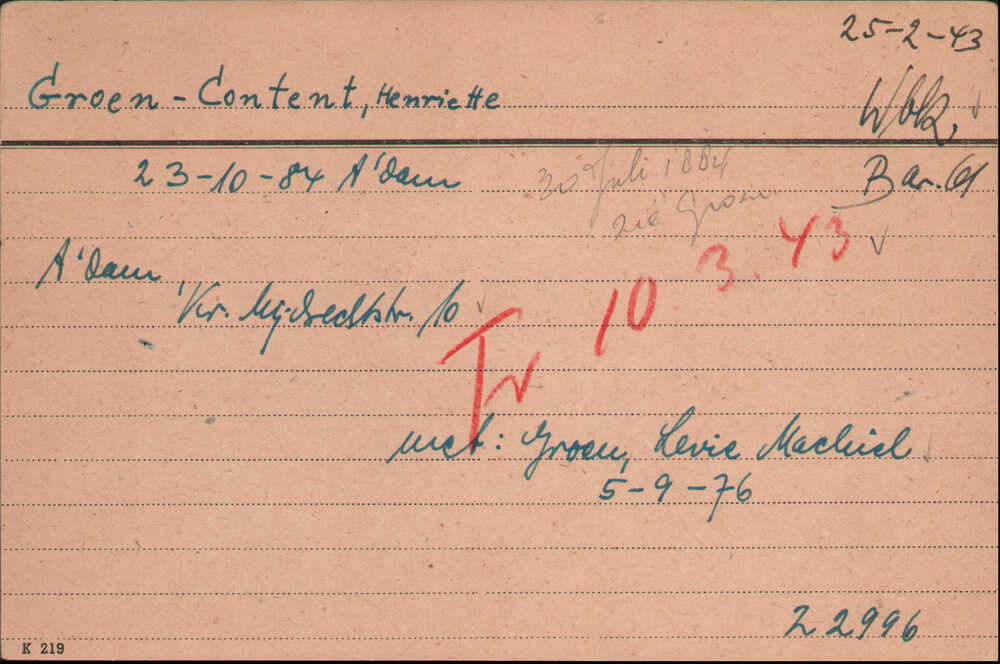 25-2-43
Groen - Content, Henriette
Wbk,
23-10-84 A'dam
30 Juli 1884
Bar. 61
zie Groen
A'dam,
10 3. 43
Kr. Mijdrechtstr. 10
Tr
met: Groen, Levie Machiel
5-9-76
Z 2996
K 219